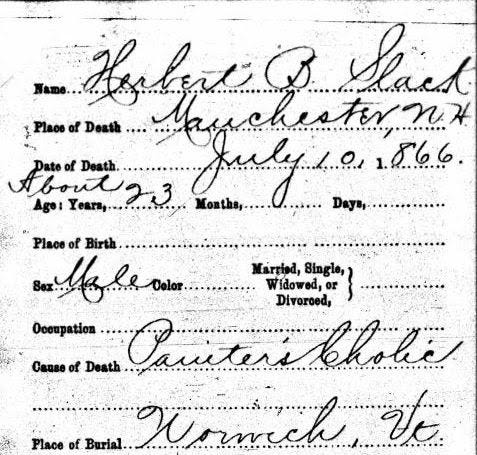 Name Herbert B Slack
Place of Death Manchester, N.H.
Date of Death July 10, 1866.
About
Age: Years, 23 Months, Days,
Place of Birth
Sex Male Color Married, Single, Widowed, or Divorced,
Occupation
Cause of Death Painter's Cholic
Place of Burial Norwich, Vt